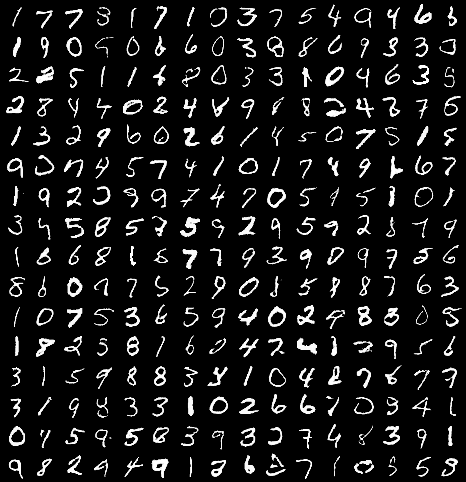 1 7 7 8 1 7 1 0 3 7 5 4 9 4 6 8
1 9 0 5 0 6 6 0 3 8 8 6 9 3 3 3
2 2 5 1 1 8 8 0 3 3 1 0 4 6 3 5
2 8 4 4 0 2 4 8 9 8 8 2 4 3 7 5
1 3 2 9 6 0 2 6 1 4 5 0 7 5 1 5
9 0 7 4 5 7 4 1 0 1 7 4 9 6 6 7
1 9 2 2 9 9 7 4 7 0 5 9 5 1 0 1
3 4 5 8 5 3 5 9 2 9 5 9 2 8 7 9
1 6 6 8 1 8 7 7 9 3 9 0 9 7 5 6
8 6 0 7 7 5 2 9 0 8 5 8 8 7 6 3
1 0 7 5 3 6 5 9 4 0 2 9 8 3 0 5
1 8 2 5 8 1 6 0 4 2 4 1 2 9 5 6
3 1 5 9 8 8 3 3 1 0 4 2 7 6 7 7
3 1 9 8 3 3 1 0 2 6 6 7 0 3 4 1
0 4 5 9 5 8 3 9 3 2 7 4 8 3 9 1
9 8 2 9 4 9 1 2 6 2 7 1 0 3 5 3